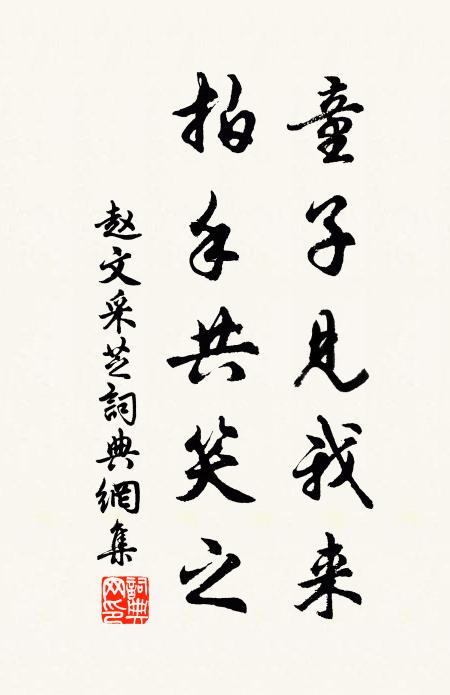 童子見我来
拍手共笑之
赵文采芝詞典網集
詞典网印